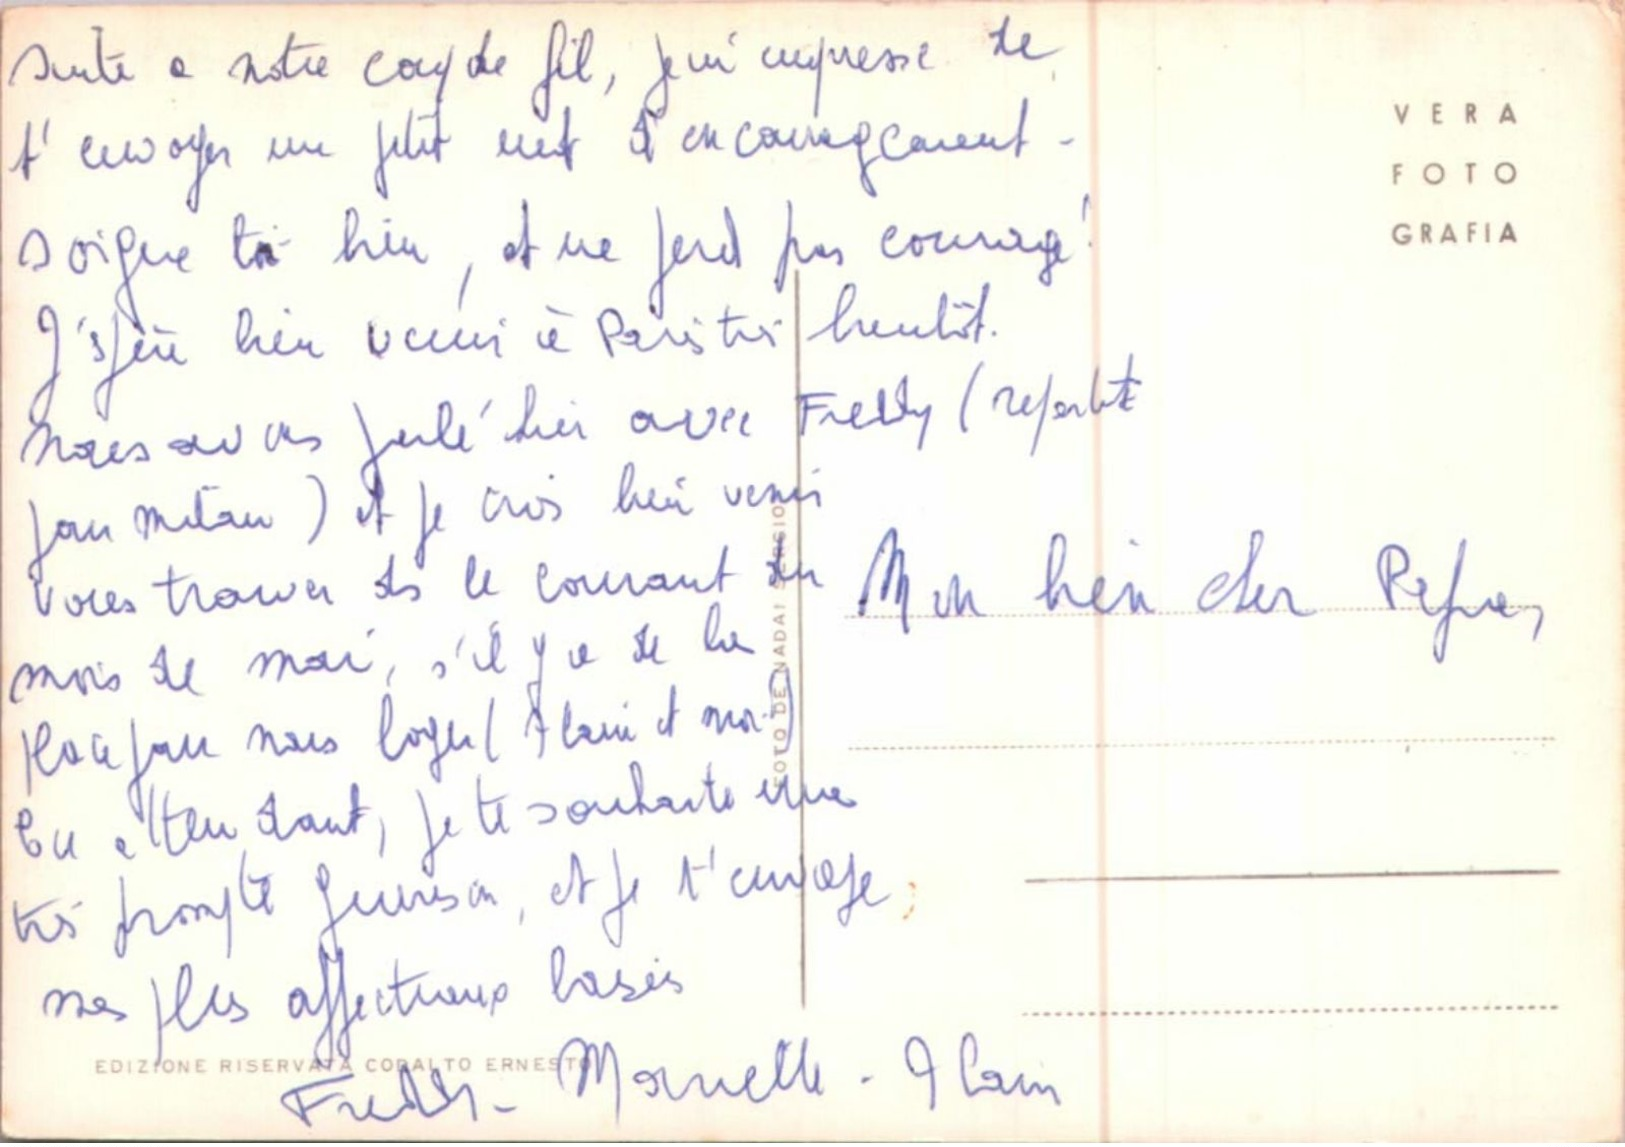 Mon bien cher Pépé,
Suite a notre coup de fil, je m'empresse de
t'envoyer un petit mot d'encouragement -
Soigne toi bien, et ne perd pas courage!
J'espère bien venir à Paris très bientôt.
Nous avons parlé hier avec Freddy (reparti
pour Milan) et je crois bien venir
vous trouver ds le courant du
mois de mai, s'il y a de la
place pour nous loger (Alain et moi)
En attendant, je te souhaite une
très prompte guérison, et je t'envoie
mes plus affectueux baisers
Freddy - Marcelle - Alain
VERA
FOTO
GRAFIA
FOTO DE NADAI SERGIO
EDIZIONE RISERVATA CORALTO ERNESTO